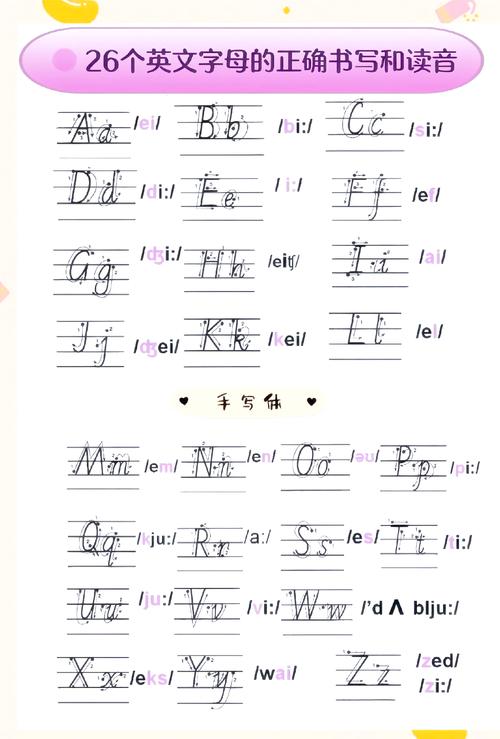 26个英文字母的正确书写和读音
Aa /ei/ Bb /bi:/ Cc /si:/
Dd /di:/ Ee / i:/ Ff /ef/
Gg /ʤi:/ Hh /eitʃ/ Ii /ai/
Jj /ʤei/ Kk /kei/ Ll /el/
♥ 手写体 ♥
Mm /em/ Nn /en/ Oo /əu/ Pp /pi:/
Qq /kju:/ Rr /a:/ Ss /es/ Tt /ti:/
Uu /ju:/ Vv /vi:/ Ww /'dΛblju:/
Xx /eks/ Yy /wai/ Zz /zed/
/zi:/